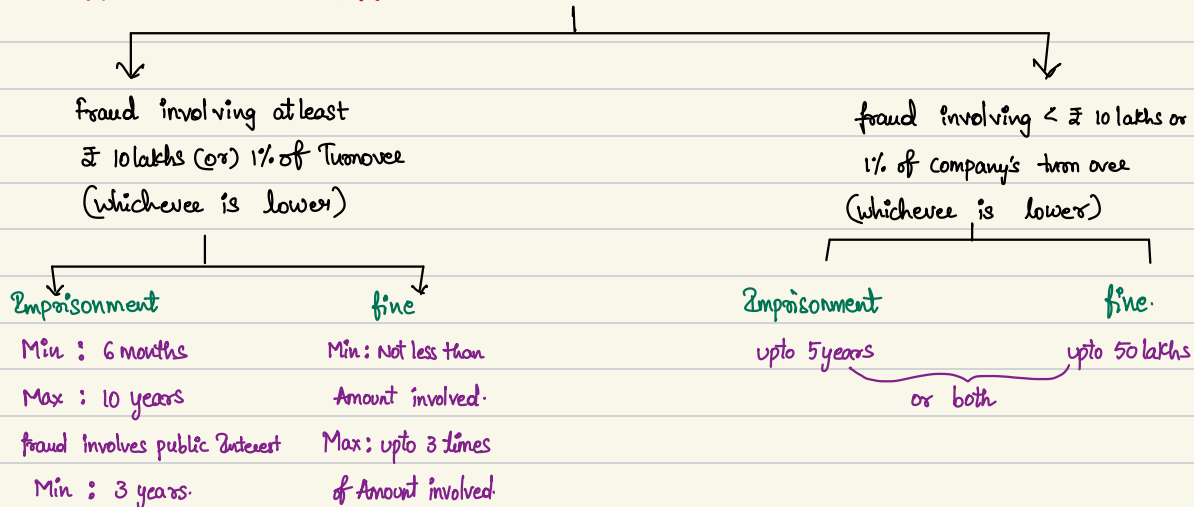 fraud involving atleast
₹ 10 lakhs (or) 1% of Turnover
(whichever is lower)
Imprisonment
Min : 6 months
Max : 10 years
fraud involves public Interest
Min : 3 years.
fine
Min : Not less than
Amount involved.
Max : upto 3 times
of Amount involved.
fraud involving < ₹ 10 lakhs or
1% of company's turn over
(whichever is lower)
Imprisonment
upto 5 years
fine.
upto 50 lakhs
or both